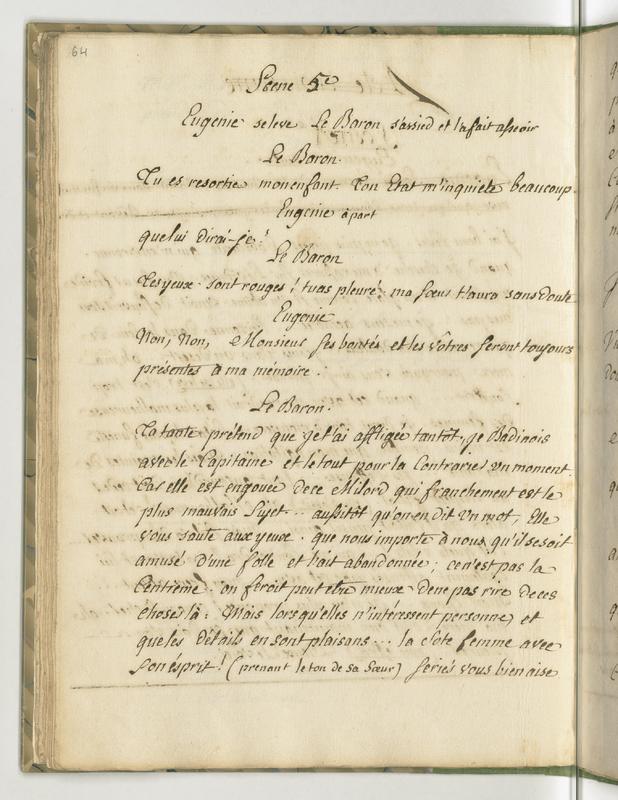 64
Scene 5e
Eugenie se leve Le Baron s'assied et la fait asseoir
Le Baron.
Tu es resortie mon enfant. Ton Etat m'inquiete beaucoup.
Eugenie à part
que lui dirai-je!
Le Baron
Tes yeux sont rouges! tu as pleuré. ma sœur t'aura sans doute
Eugenie
Non, Non, Monsieur ses bontés et les vôtres seront toujours
présentes à ma mémoire.
Le Baron.
Ta tante prétend que je t'ai affligée tantôt, je Badinois
avec le Capitaine et le tout pour la Contrarier un moment
Car elle est engouée de ce Milord qui franchement est le
plus mauvais sujet... aussitôt qu'on en dit un mot, Elle
vous saute aux yeux. que nous importe à nous qu'il se soit
amusé d'une folle et l'ait abandonnée; ce n'est pas la
Centième. on feroit peut etre mieux de ne pas rire de ces
choses là: Mais lorsqu'elles n'intéressent personne, et
que les détails en sont plaisans... la sote femme avec
son ésprit! (prenant le ton de sa sœur) seriés vous bien aise